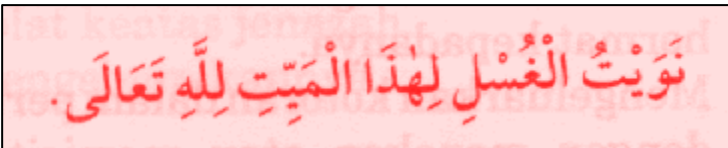 نَوَيْتُ الْغُسْلِ لِهٰذَا الْمَيِّتِ لِلَّهِ تَعَالَى.